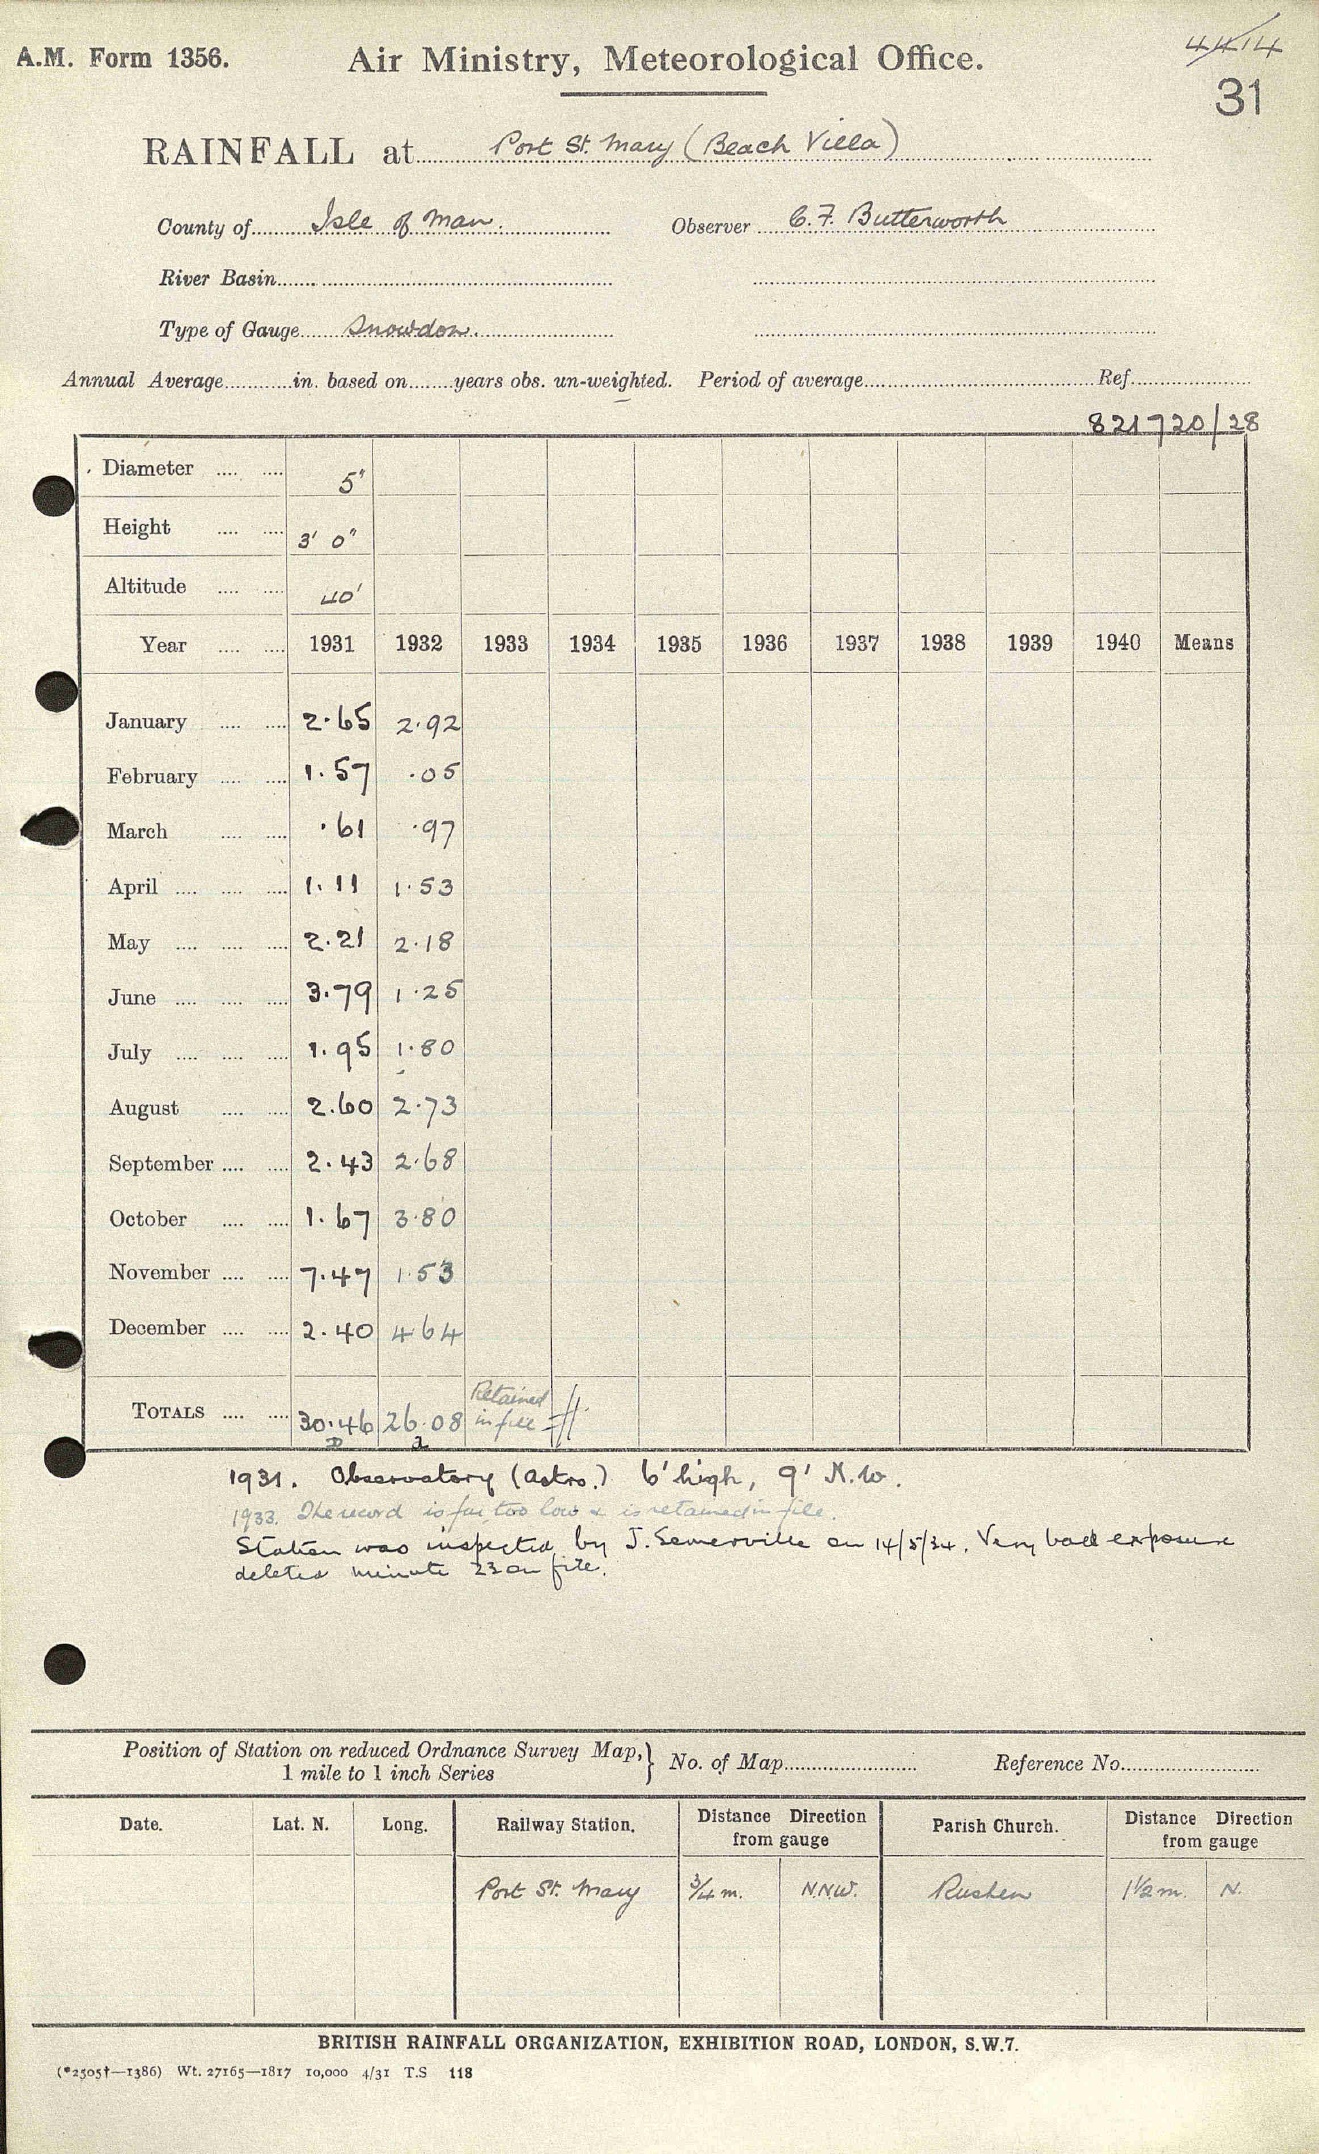 A.M. Form 1356.
Air Ministry, Meteorological Office.
4414
31
RAINFALL at Port St. Mary (Beach Villa)
County of Isle of Man. Observer C.F. Butterworth
River Basin
Type of Gauge Snowdon.
Annual Average in. based on years obs. un-weighted. Period of average Ref.
821720/28
Diameter 5"
Height 3' 0"
Altitude 40'
Year 1931 1932 1933 1934 1935 1936 1937 1938 1939 1940 Means
January 2.65 2.92
February 1.57 .05
March .61 .97
April 1.11 1.53
May 2.21 2.18
June 3.79 1.25
July 1.95 1.80
August 2.60 2.73
September 2.43 2.68
October 1.67 3.80
November 7.47 1.53
December 2.40 4.64
TOTALS 30.46 26.08 Retained in file
1931. Observatory (Astro.) 6' high, 9' N.W.
1933. The record is far too low & is retained in file.
Station was inspected by J. Somerville on 14/5/34. Very bad exposure
deleted minute 23 on file.
Position of Station on reduced Ordnance Survey Map, 1 mile to 1 inch Series } No. of Map Reference No.
Date. Lat. N. Long. Railway Station. Distance Direction from gauge Parish Church. Distance Direction from gauge
Port St. Mary 3/4 m. N.N.W. Rushen 1 1/2 m. N.
BRITISH RAINFALL ORGANIZATION, EXHIBITION ROAD, LONDON, S.W.7.
(*2505†—1386) Wt. 27165—1817 10,000 4/31 T.S 118